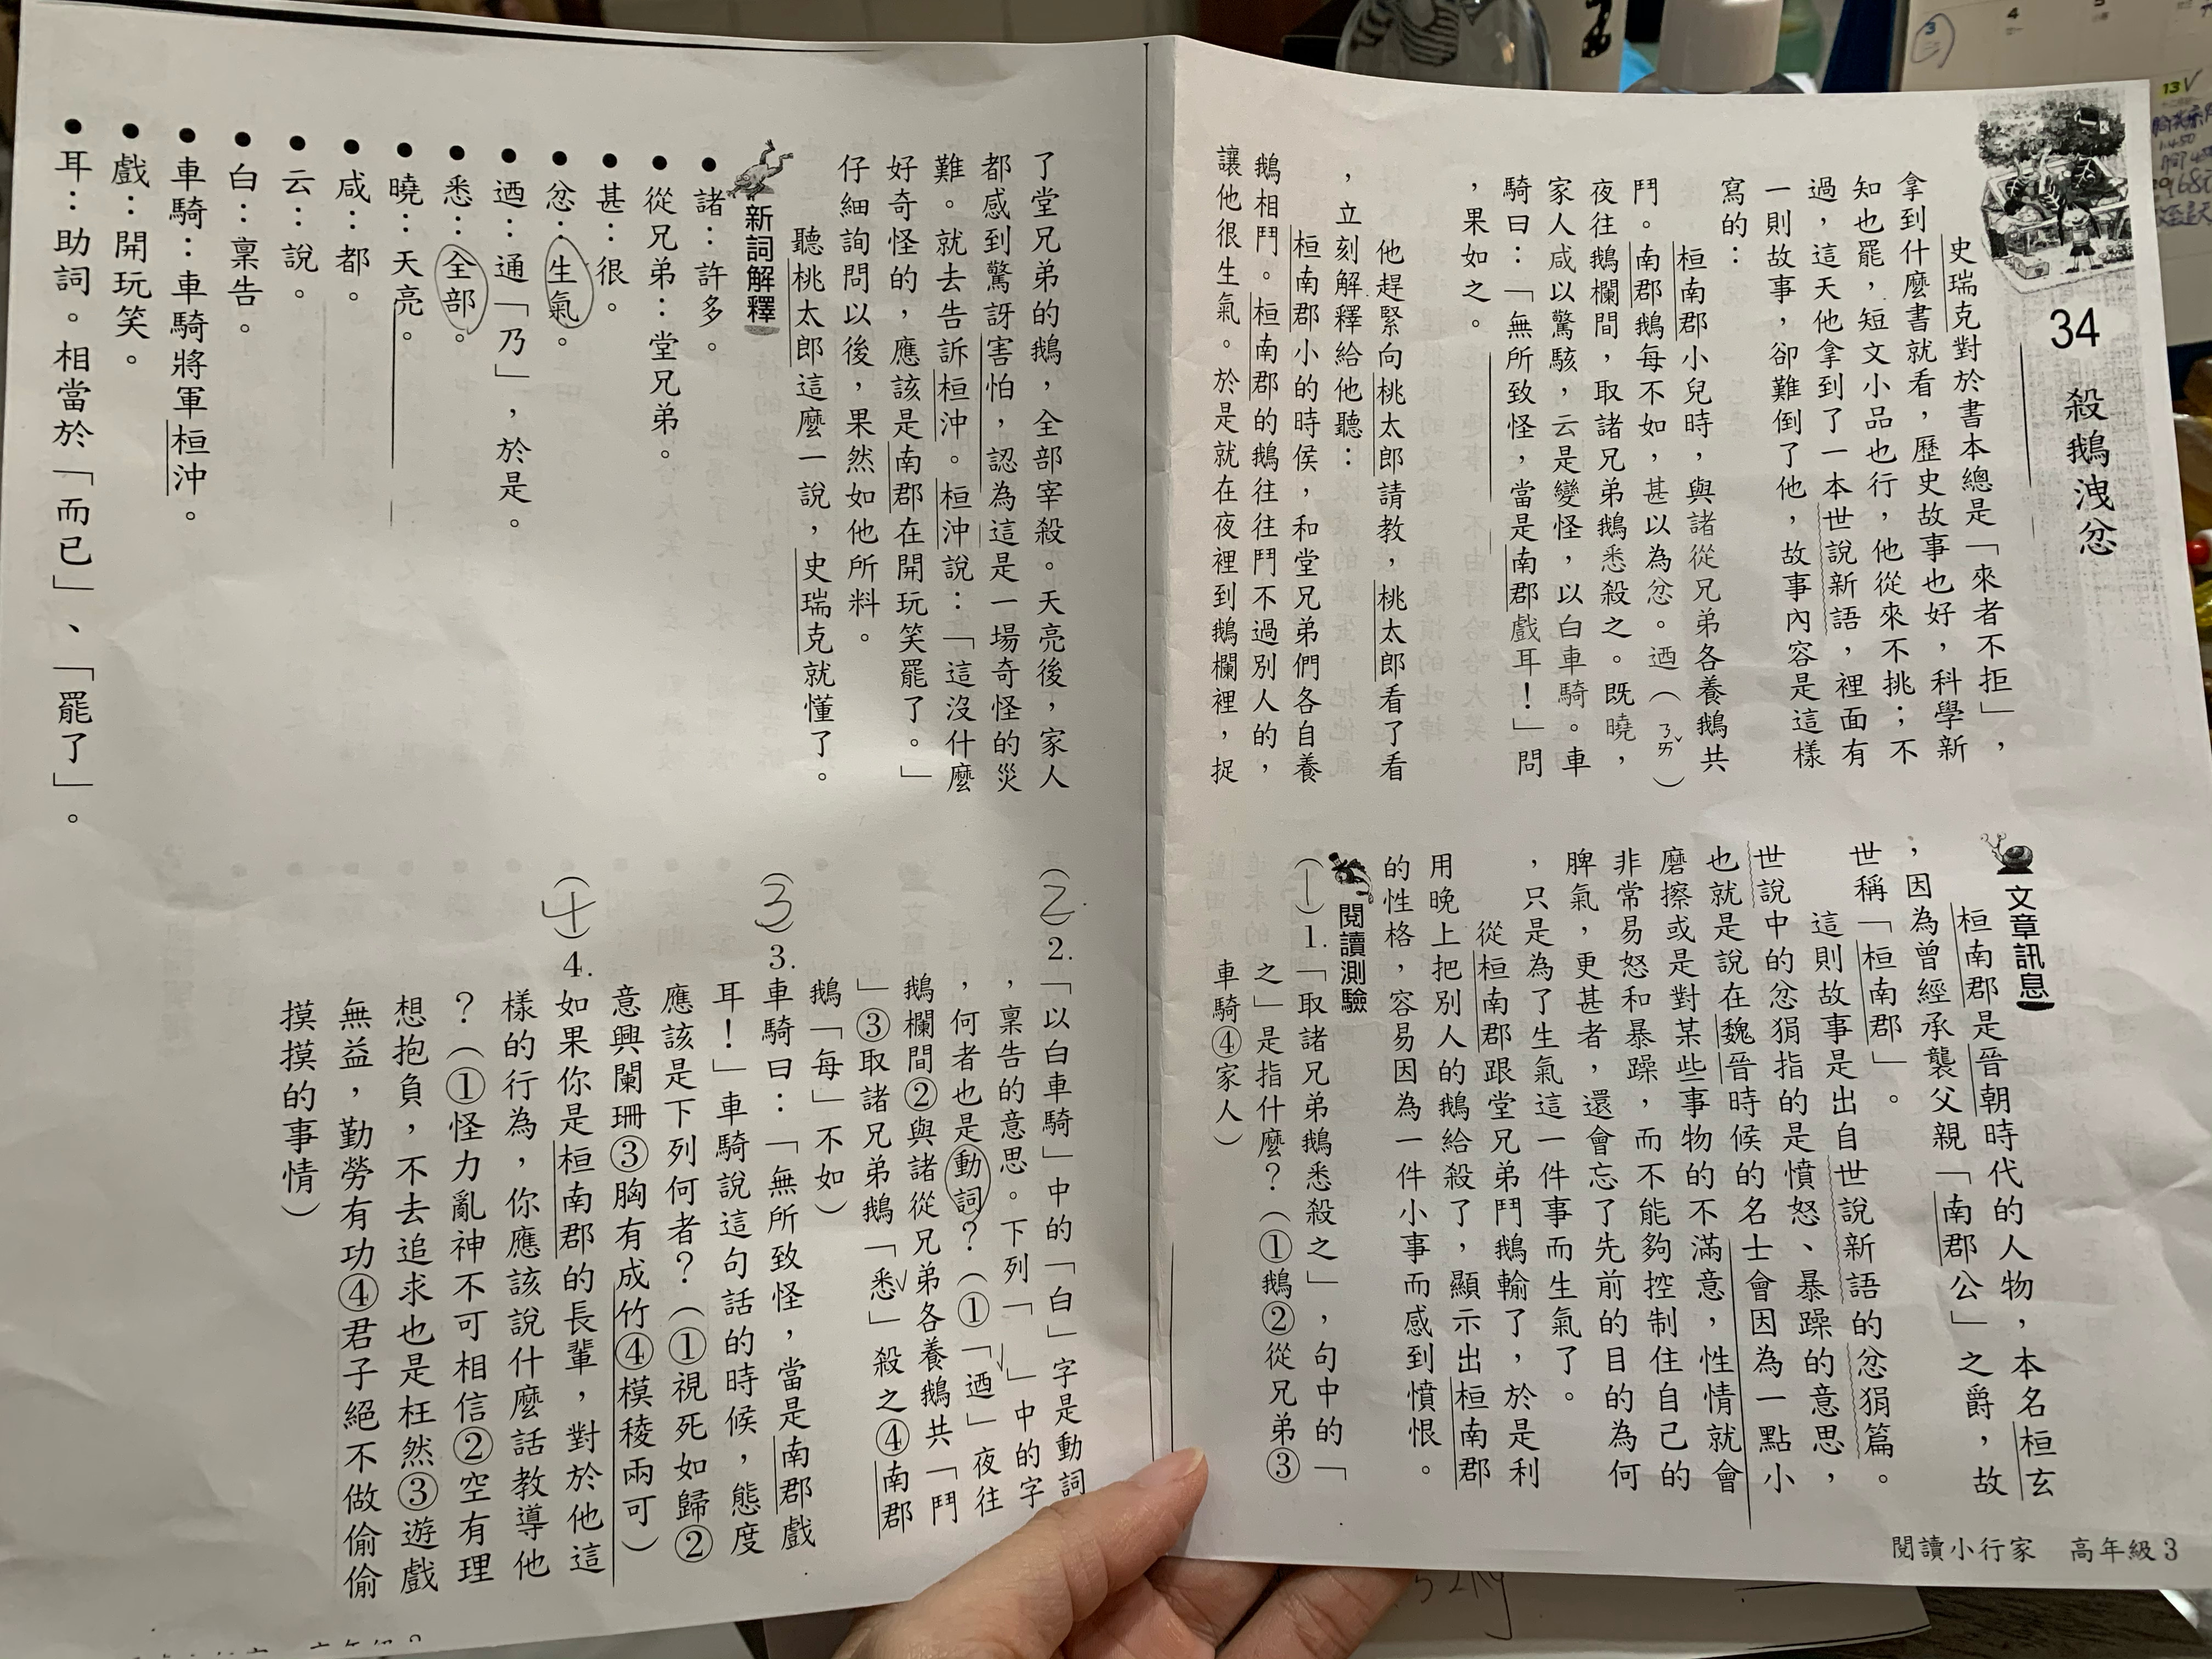 34　殺鵝洩忿
史瑞克對於書本總是「來者不拒」，
拿到什麼書就看，歷史故事也好，科學新
知也罷，短文小品也行，他從來不挑；不
過，這天他拿到了一本世說新語，裡面有
一則故事，卻難倒了他，故事內容是這樣
寫的：
桓南郡小兒時，與諸從兄弟各養鵝共
鬥。南郡鵝每不如，甚以為忿。迺（ㄋㄞˇ）
夜往鵝欄間，取諸兄弟鵝悉殺之。既曉，
家人咸以驚駭，云是變怪，以白車騎。車
騎曰：「無所致怪，當是南郡戲耳！」問
，果如之。
他趕緊向桃太郎請教，桃太郎看了看
，立刻解釋給他聽：
桓南郡小的時侯，和堂兄弟們各自養
鵝相鬥。桓南郡的鵝往往鬥不過別人的，
讓他很生氣。於是就在夜裡到鵝欄裡，捉
了堂兄弟的鵝，全部宰殺。天亮後，家人
都感到驚訝害怕，認為這是一場奇怪的災
難。就去告訴桓沖。桓沖說：「這沒什麼
好奇怪的，應該是南郡在開玩笑罷了。」
仔細詢問以後，果然如他所料。
聽桃太郎這麼一說，史瑞克就懂了。
新詞解釋
●諸：許多。
●從兄弟：堂兄弟。
●甚：很。
●忿：生氣。
●迺：通「乃」，於是。
●悉：全部。
●曉：天亮。
●咸：都。
●云：說。
●白：稟告。
●車騎：車騎將軍桓沖。
●戲：開玩笑。
●耳：助詞。相當於「而已」、「罷了」。
文章訊息
桓南郡是晉朝時代的人物，本名桓玄
，因為曾經承襲父親「南郡公」之爵，故
世稱「桓南郡」。
這則故事是出自世說新語的忿狷篇。
世說中的忿狷指的是憤怒、暴躁的意思，
也就是說在魏晉時候的名士會因為一點小
磨擦或是對某些事物的不滿意，性情就會
非常易怒和暴躁，而不能夠控制住自己的
脾氣，更甚者，還會忘了先前的目的為何
，只是為了生氣這一件事而生氣了。
從桓南郡跟堂兄弟鬥鵝輸了，於是利
用晚上把別人的鵝給殺了，顯示出桓南郡
的性格，容易因為一件小事而感到憤恨。
閱讀測驗
（1）1.「取諸兄弟鵝悉殺之」，句中的「
之」是指什麼？（①鵝②從兄弟③
車騎④家人）
（2）2.「以白車騎」中的「白」字是動詞
，稟告的意思。下列「　」中的字
，何者也是動詞？（①「迺」夜往
鵝欄間②與諸從兄弟各養鵝共「鬥
」③取諸兄弟鵝「悉」殺之④南郡
鵝「每」不如）
（3）3.車騎曰：「無所致怪，當是南郡戲
耳！」車騎說這句話的時候，態度
應該是下列何者？（①視死如歸②
意興闌珊③胸有成竹④模稜兩可）
（4）4.如果你是桓南郡的長輩，對於他這
樣的行為，你應該說什麼話教導他
？（①怪力亂神不可相信②空有理
想抱負，不去追求也是枉然③遊戲
無益，勤勞有功④君子絕不做偷偷
摸摸的事情）
閱讀小行家　高年級 3
3
4
5
13